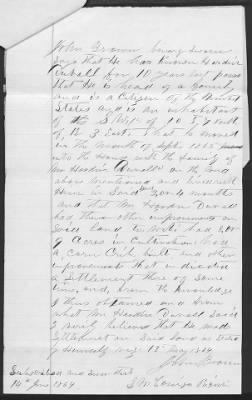 John Brown being sworn
Says that He has Known Hardin
Duvall for 10 years last past
that He is head of a family
and is a citizen of the United
States and is an inhabitant
of the S W 1/4 of 10 T 7 north
of R 3 East that he moved
in the month of Sept 1865
into the House with the family of
Mr Hardin Duvall on the land
above mentioned and lived with
them in Said House 3 or 4 months
and that Mr Hardin Duvall
had there other improvements on
Said land to wit: had 8 or
9 Acres in Cultivation had
a corn Crib built and other
improvements that indicated
Settlement there of Some
time, and, from the Knowledge
I thus obtained and from
what Mr Hardin Duvall Said
I verily believe that He made
Settlement on Said land as Stated
by Himself
John Brown
Subscribed and sworn this
14th June 1869